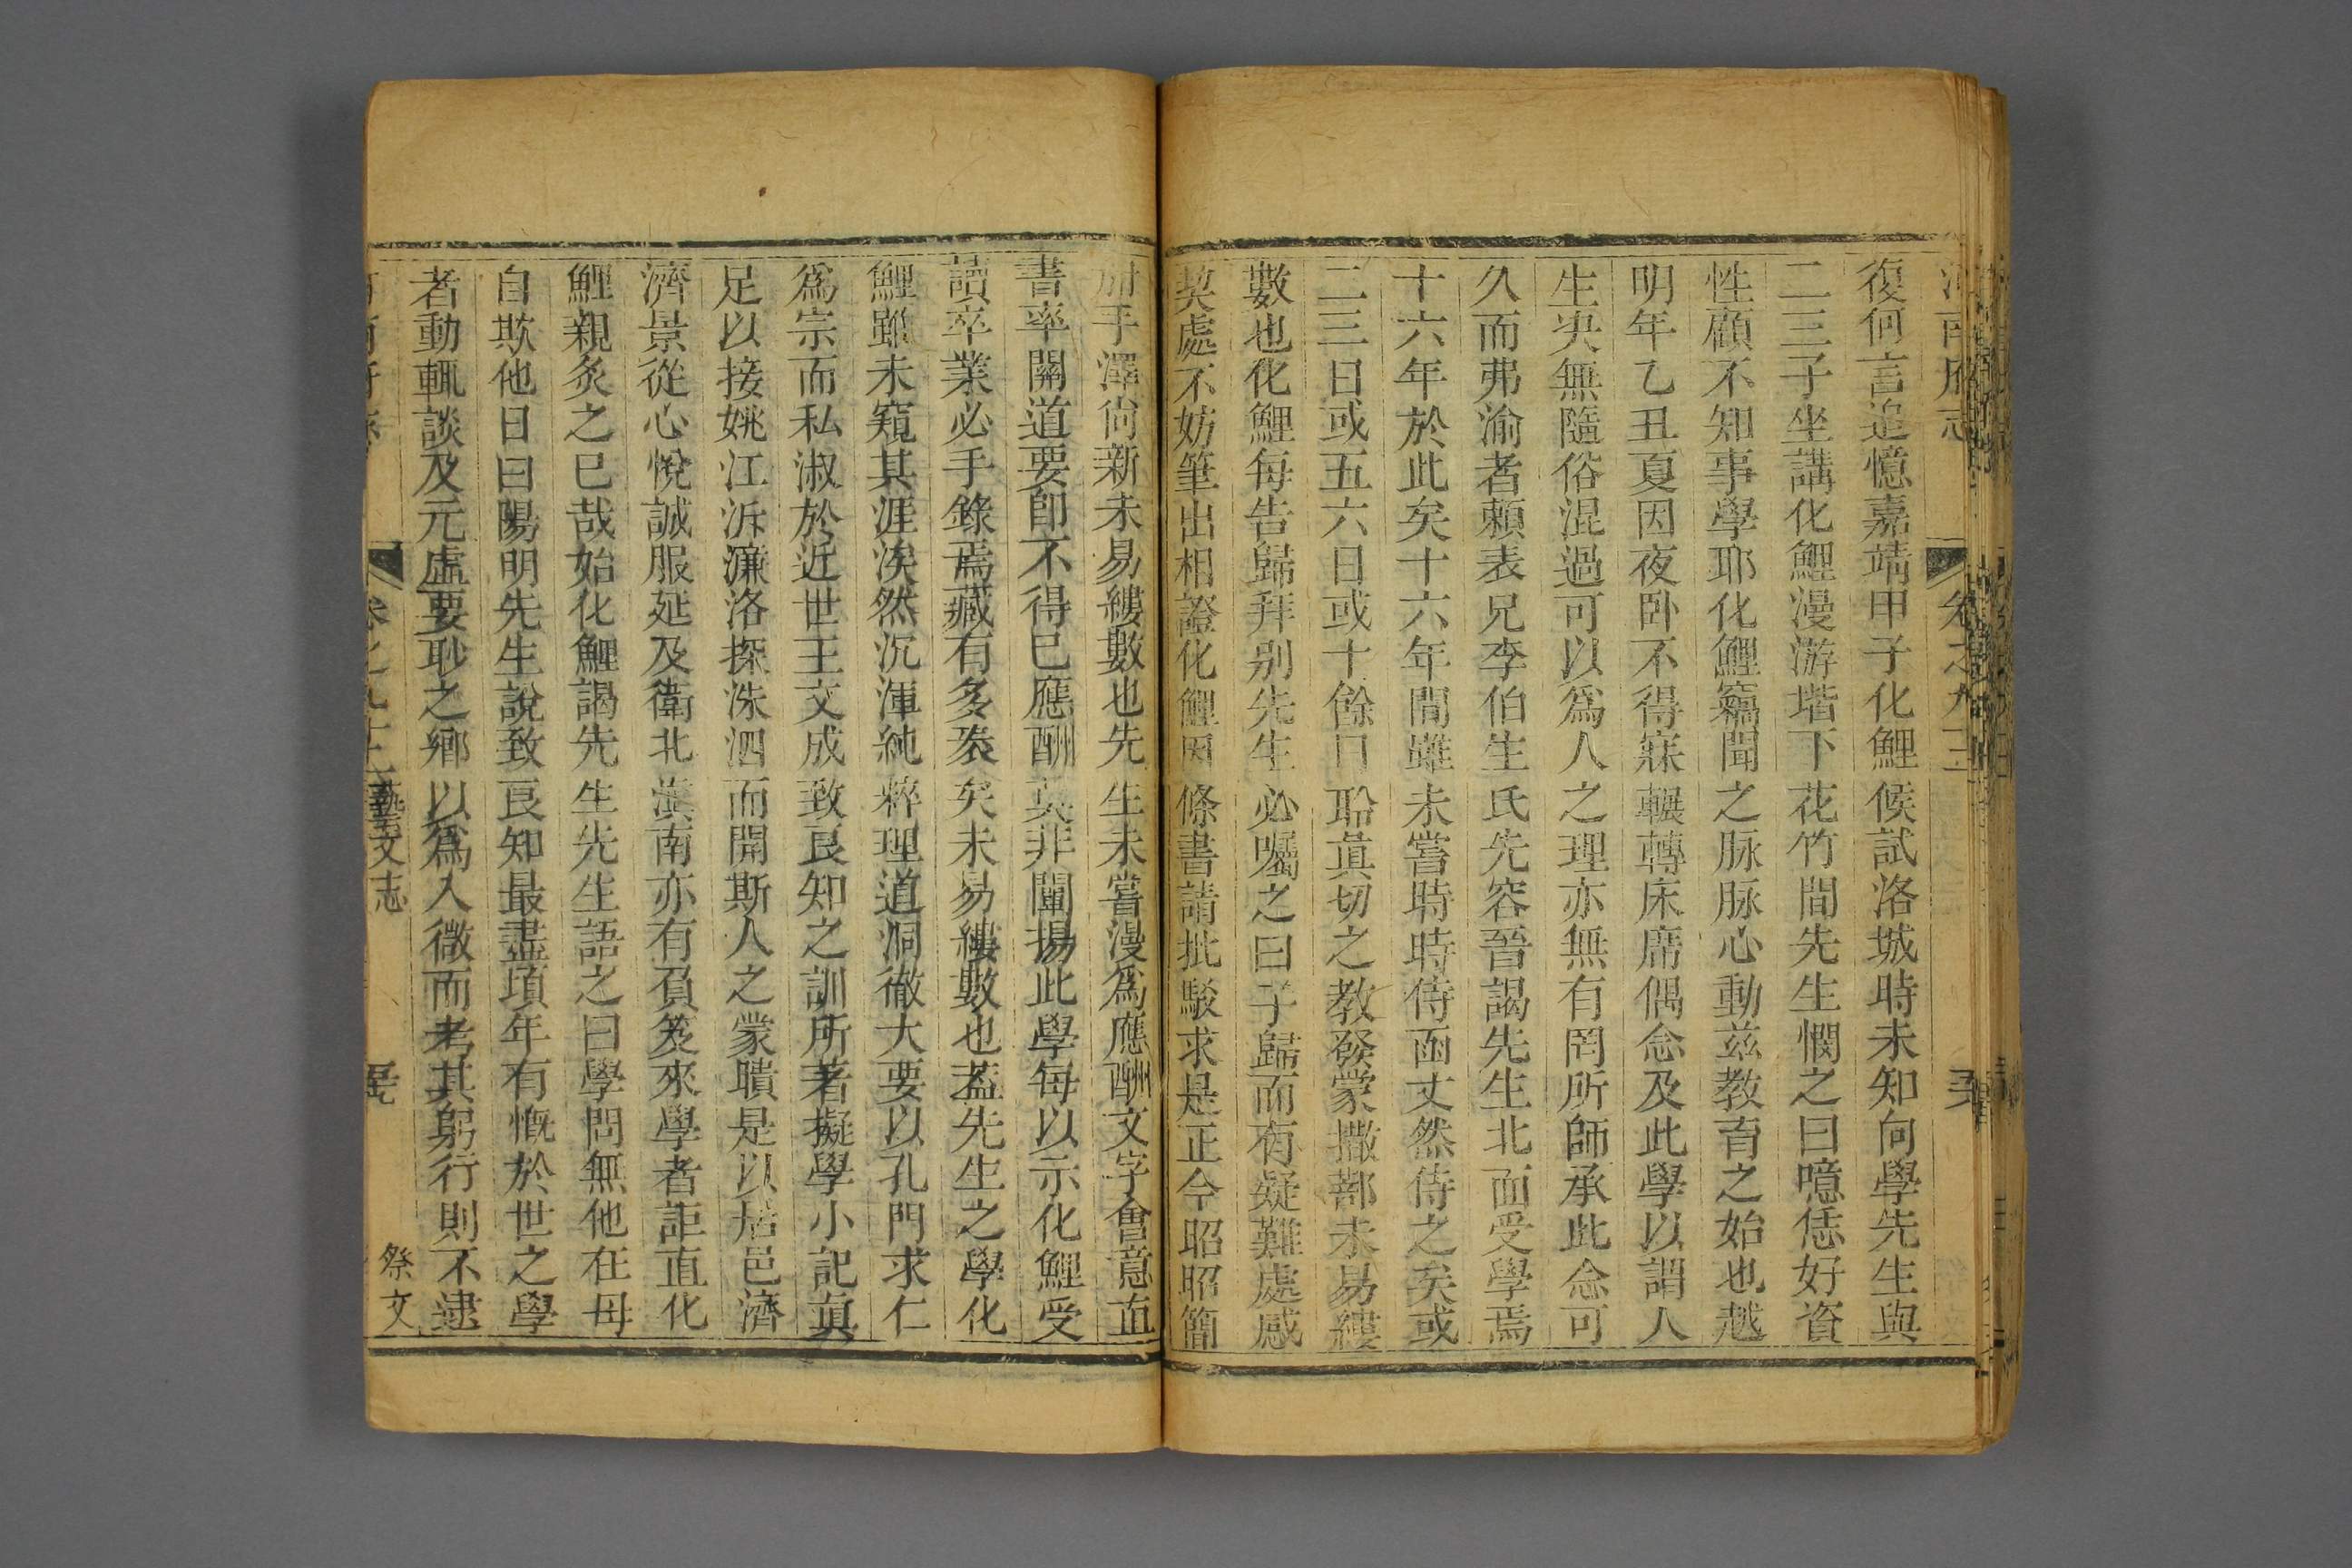 河南府志
卷之九十三
復何言追憶嘉靖甲子化鯉候試洛城時未知向學先生與
二三子坐講化鯉漫游堦下花竹間先生憫之曰噫恁好資
性顧不知事學耶化鯉竊聞之脉脉心動茲教育之始也越
明年乙丑夏因夜卧不得寐輾轉床席偶念及此學以謂人
生央無隨俗混過可以爲人之理亦無有罔所師承此念可
久而弗渝者賴表兄李伯生氏先容晉謁先生北面受學焉
十六年於此矣十六年間雖未嘗時時侍函丈然侍之矣或
二三日或五六日或十餘日聆眞切之教發蒙撒蔀未易縷
數也化鯉每告歸拜别先生必囑之曰子歸而有疑難處感
契處不妨筆出相證化鯉因條書請批駁求是正今昭昭簡
册手澤尙新未易縷數也先生未嘗漫爲應酬文字會意直
書率關道要卽不得已應酬莫非闡揚此學每以示化鯉受
讀卒業必手錄焉藏有多袠矣未易縷數也葢先生之學化
鯉雖未窺其涯涘然沉渾純粹理道洞徹大要以孔門求仁
爲宗而私淑於近世王文成致良知之訓所著擬學小記眞
足以接姚江泝濂洛探洙泗而開斯人之蒙聵是以居邑濟
濟景從心悅誠服延及衛北滇南亦有負笈來學者詎直化
鯉親炙之已哉始化鯉謁先生先生語之曰學問無他在毋
自欺他日曰陽明先生說致良知最盡項年有慨於世之學
者動輒談及元虛要耿之鄉以爲入微而考其躬行則不逮
藝文志
祭文